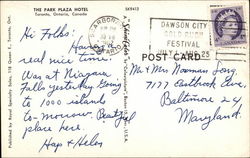 THE PARK PLAZA HOTEL
Toronto, Ontario, Canada
SK9412
Hi Folks:
Having a
real nice time.
Was at Niagara
Falls yesterday. Going
to 1000 islands
to-morrow. Beautiful
place here.
Hap & Helen
DAWSON CITY
GOLD RUSH
FESTIVAL
POST CARD
Mr & Mrs Norman Song
7177 Eastbrook Ave.
Baltimore 24
Maryland.
Published by Royal Specialty Sales, 118 Queen E., Toronto, Ont.